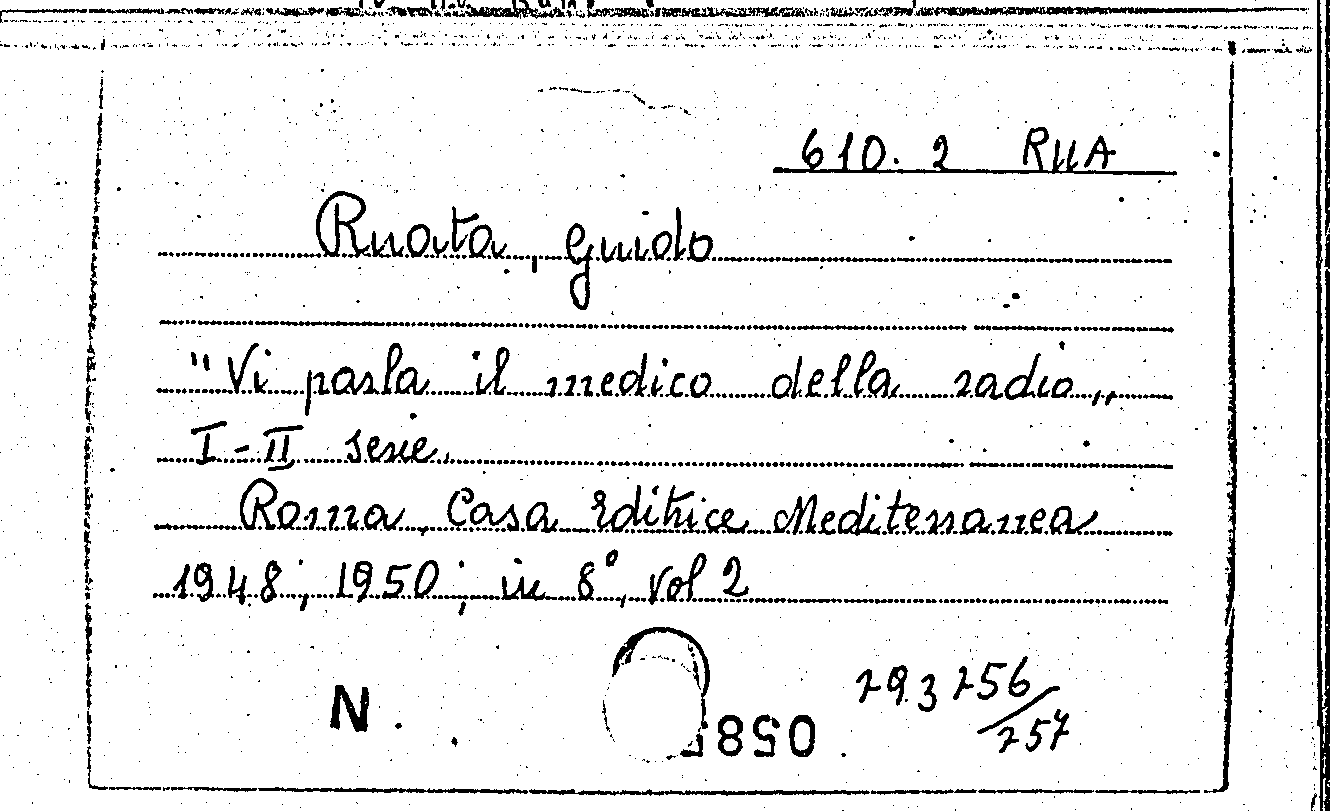 610.2 RUA
Ruata, Guido
"Vi parla il medico della radio„
I-II serie.
Roma, Casa Editrice Mediterranea
1948; 1950; in 8°, vol 2
N.
293256/
257